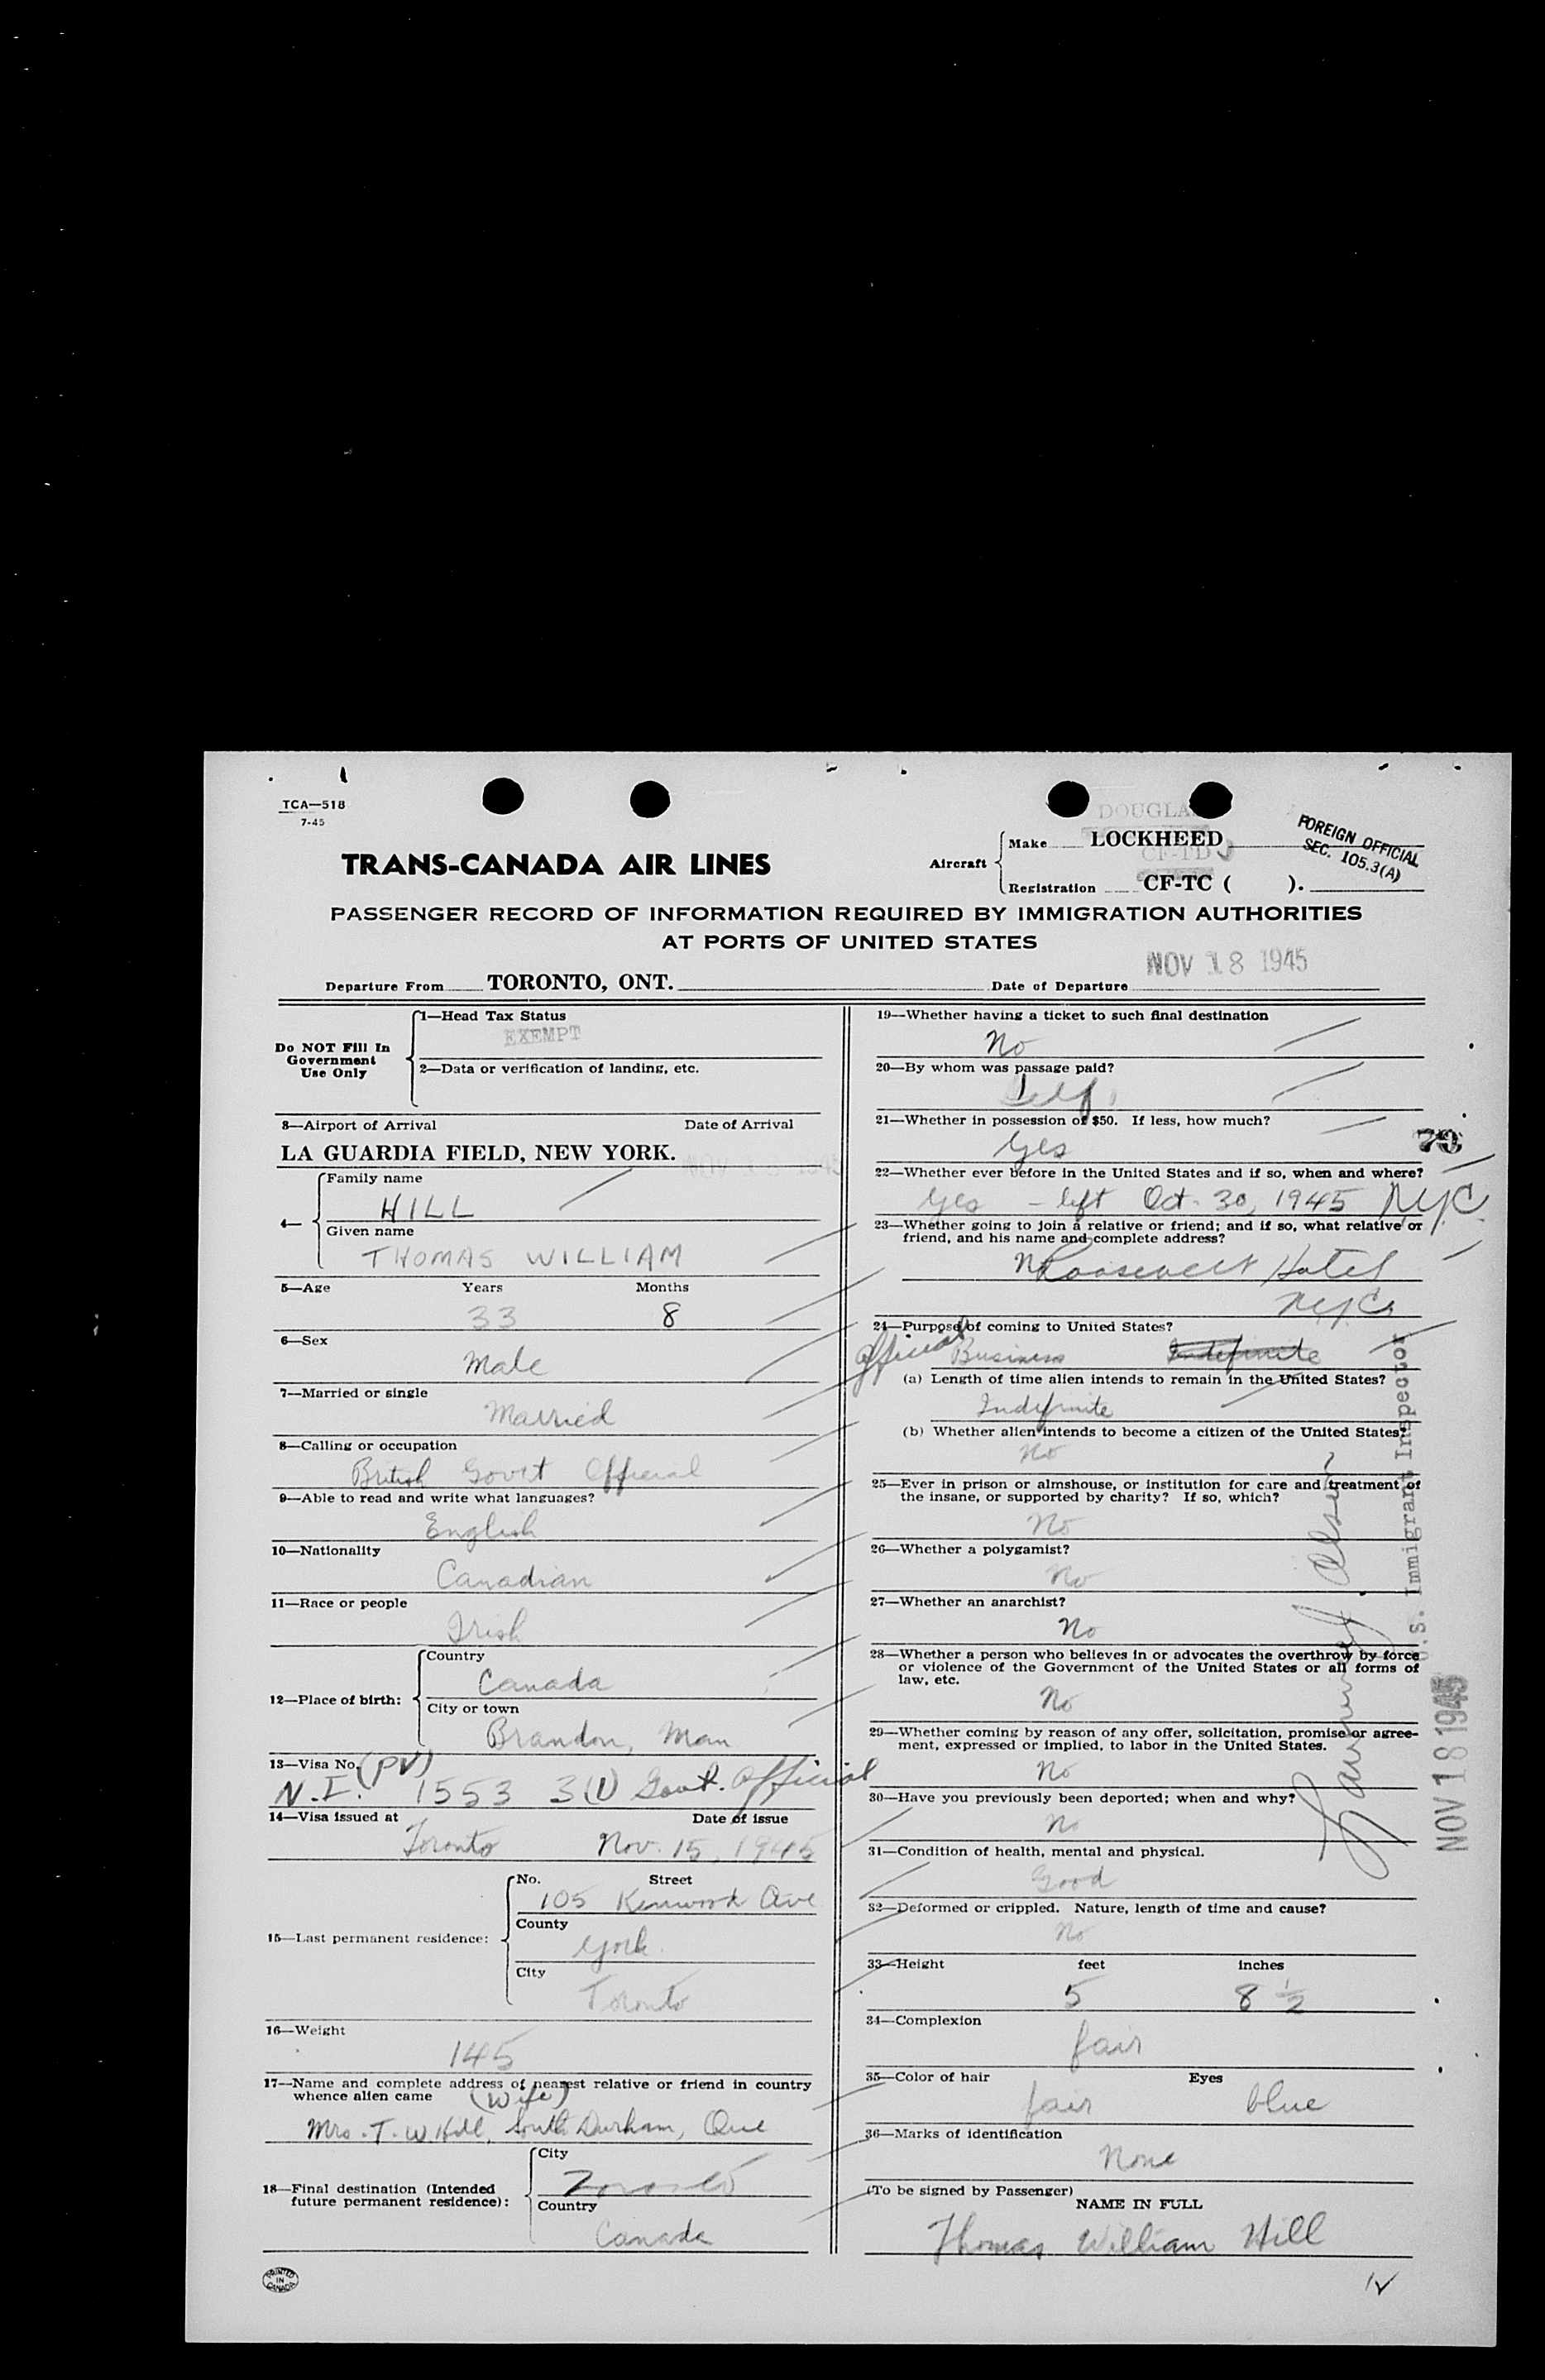 TCA—518
7-45
DOUGLAS
Aircraft
Make LOCKHEED
CF-TD
Registration CF-TC ( ).
FOREIGN OFFICIAL
SEC. 105.3(A)
TRANS-CANADA AIR LINES
PASSENGER RECORD OF INFORMATION REQUIRED BY IMMIGRATION AUTHORITIES
AT PORTS OF UNITED STATES
NOV 18 1945
Departure From TORONTO, ONT. Date of Departure
Do NOT Fill In
Government
Use Only
1—Head Tax Status
EXEMPT
2—Data or verification of landing, etc.
3—Airport of Arrival Date of Arrival
LA GUARDIA FIELD, NEW YORK. NOV 18 1945
4—
Family name
HILL
Given name
THOMAS WILLIAM
5—Age Years Months
33 8
6—Sex
Male
7—Married or single
Married
8—Calling or occupation
British Govt Official
9—Able to read and write what languages?
English
10—Nationality
Canadian
11—Race or people
Irish
12—Place of birth:
Country
Canada
City or town
Brandon, Man
13—Visa No. (PV)
N.I. 1553 3(1) Govt. Official
14—Visa issued at Date of issue
Toronto Nov. 15, 1945
15—Last permanent residence:
No. Street
105 Kenwood Ave
County
York
City
Toronto
16—Weight
145
17—Name and complete address of nearest relative or friend in country
whence alien came (Wife)
Mrs. T. W. Hill, South Durham, Que
18—Final destination (Intended
future permanent residence):
City
Toronto
Country
Canada
PRINTED
IN
CANADA
19—Whether having a ticket to such final destination
No
20—By whom was passage paid?
Self
21—Whether in possession of $50. If less, how much?
Yes
22—Whether ever before in the United States and if so, when and where?
Yes - left Oct. 30, 1945 NYC.
23—Whether going to join a relative or friend; and if so, what relative or
friend, and his name and complete address?
No Roosevelt Hotel
NYC
24—Purpose of coming to United States?
Official Business Indefinite
(a) Length of time alien intends to remain in the United States?
Indefinite
(b) Whether alien intends to become a citizen of the United States?
No
25—Ever in prison or almshouse, or institution for care and treatment of
the insane, or supported by charity? If so, which?
No
26—Whether a polygamist?
No
27—Whether an anarchist?
No
28—Whether a person who believes in or advocates the overthrow by force
or violence of the Government of the United States or all forms of
law, etc.
No
29—Whether coming by reason of any offer, solicitation, promise or agree-
ment, expressed or implied, to labor in the United States.
No
30—Have you previously been deported; when and why?
No
31—Condition of health, mental and physical.
Good
32—Deformed or crippled. Nature, length of time and cause?
No
33—Height feet inches
5 8 ½
34—Complexion
fair
35—Color of hair Eyes
fair blue
36—Marks of identification
None
(To be signed by Passenger)
NAME IN FULL
Thomas William Hill
U.S. Immigrant Inspector
NOV 18 1945